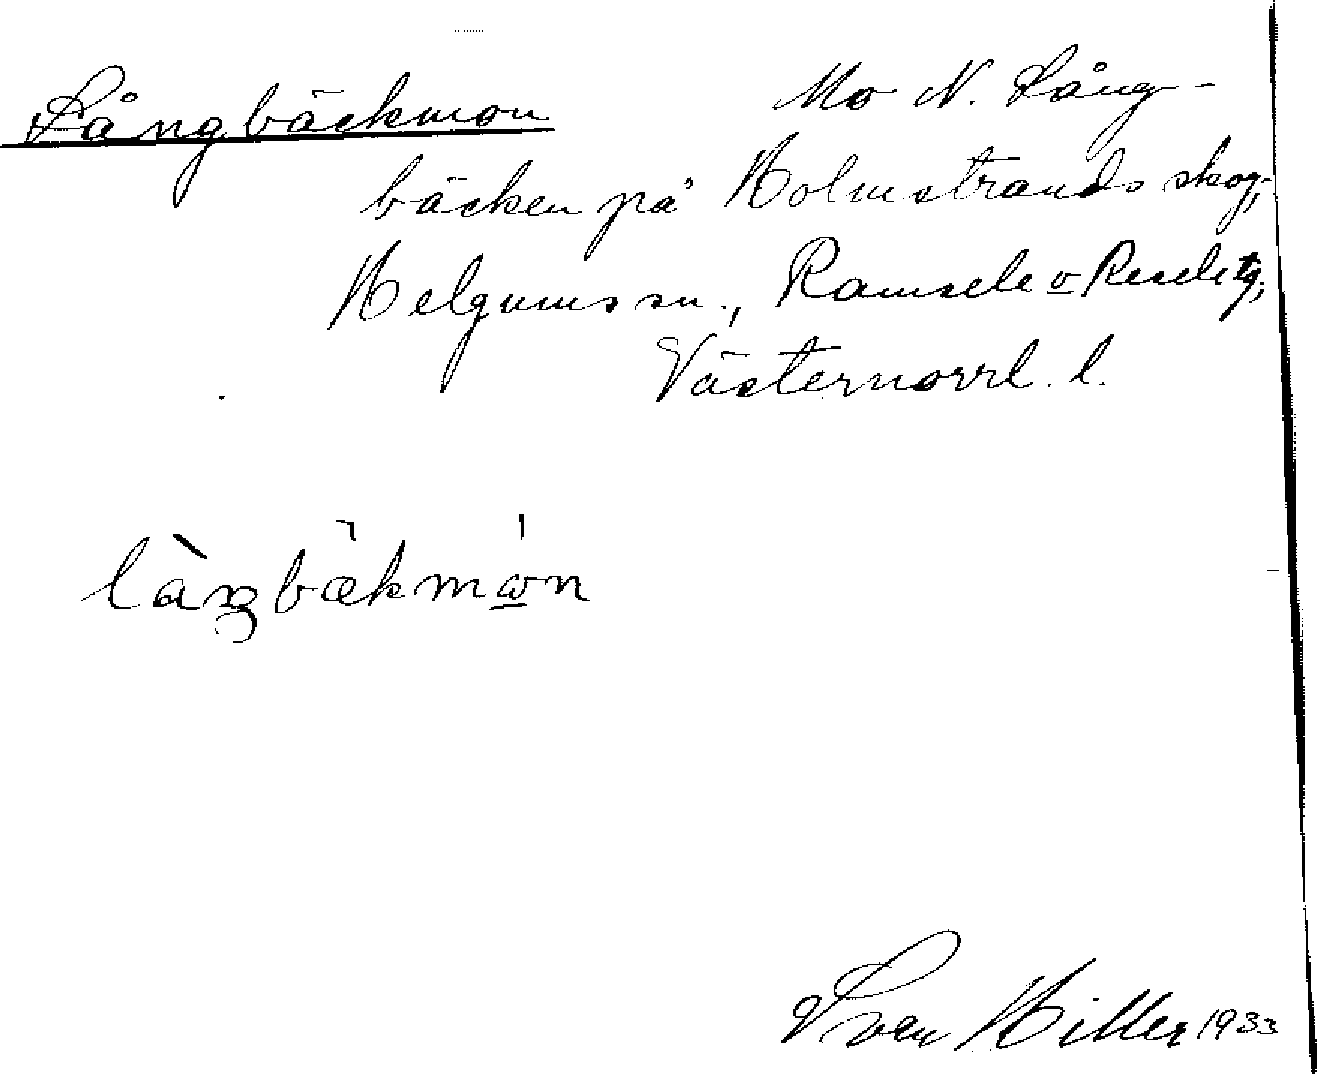 Långbäckmon Mo N. Lång-
bäcken på Holmstrands skog,
Helgums sn., Ramsele o Resele tg,
Västernorrl. l.
làŋbækmωn
Sven Hiller 1933